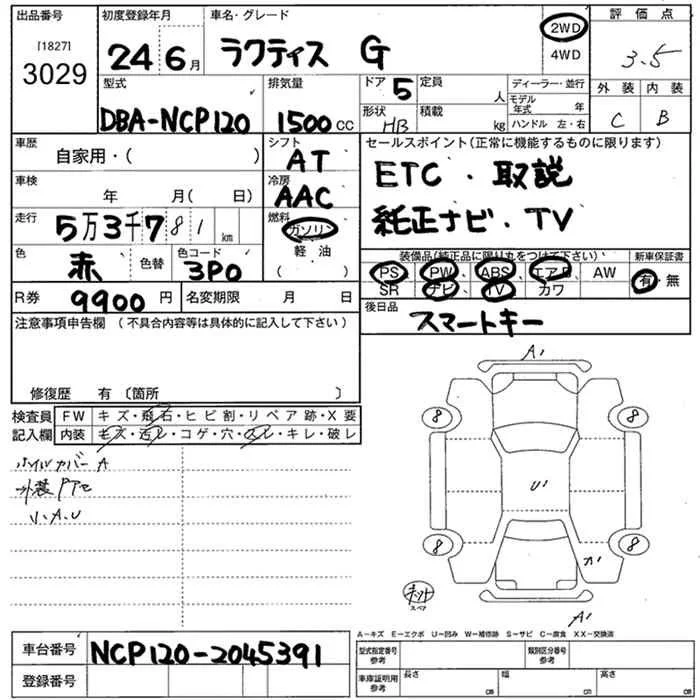 出品番号 初度登録年月 車名・グレード 評価点
[1827]
3029
24年6月 ラクティス G 2WD 4WD 3.5
型式 排気量 ドア 5 定員 人 ディーラー・並行 外装 内装
モデル年式 年
DBA-NCP120 1500cc 形状 HB 積載 kg ハンドル 左・右 C B
車歴 シフト セールスポイント(正常に機能するものに限ります)
自家用・( ) AT ETC・取説
車検 年 月( 日) 冷房 AAC 純正ナビ・TV
走行 5万3千781km 燃料 ガソリン
軽油
( )
装備品(純正品に限り丸をつけて下さい) 新車保証書
色 赤 色替 色コード 3P0
PS、PW、ABS、エアB、AW 有・無
SR ナビ、TV、カワ
R券 9900円 名変期限 月 日
後日品 スマートキー
注意事項申告欄(不具合内容等は具体的に記入して下さい)
修復歴 有〔箇所 〕
検査員 FW キズ・飛石・ヒビ割・リペア跡・X要
記入欄 内装 キズ・汚レ・コゲ・穴・スレ・キレ・破レ
ホイルカバーA
小.A.U
A1
8 8
U1
8 8
A1
スペア
A1
A-キズ E-エクボ U-凹み W-補修跡 S-サビ C-腐食 XX-交換済
車台番号 NCP120-2045391
登録番号
型式指定番号 参考 類別区分番号 参考
車庫証明用 参考 長さ cm 幅 cm 高さ cm